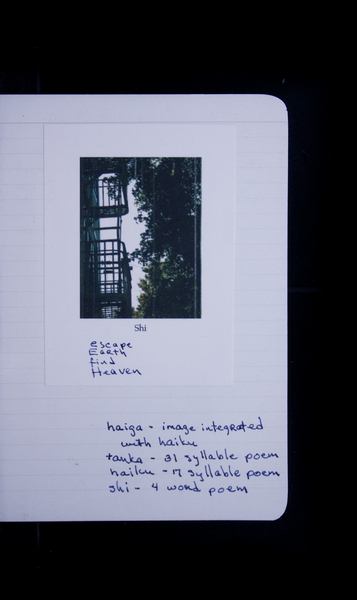 Shi
escape
Earth
find
Heaven
haiga - image integrated
with haiku
tanka - 31 syllable poem
haiku - 17 syllable poem
shi - 4 word poem